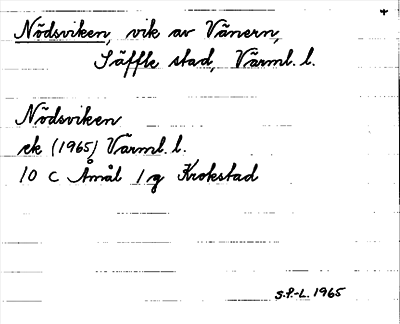 Nödsviken, vik av Vänern,
Säffle stad, Värml. l.
Nödsviken
ek (1965) Värml. l.
10 C Åmål 1g Krokstad
S.P.-L. 1965